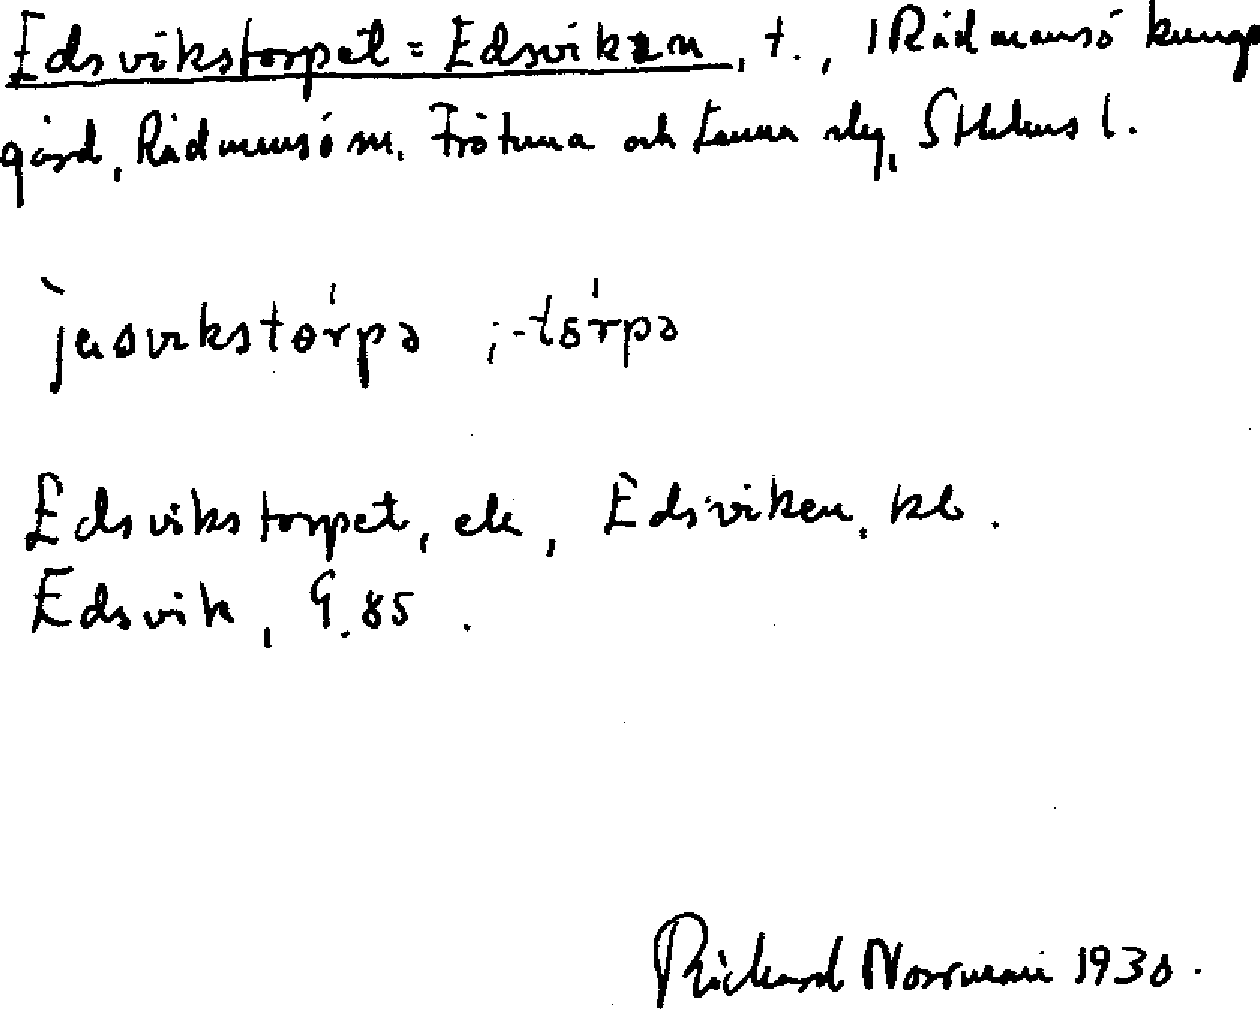 Edsvikstorpet = Edsviken, t., 1 Rådmansö kungs
gård, Rådmansö sn. Frötuna och Länna slg, Sthlms l.
jɛsvikstørpə ; -tɵrpə
Edsvikstorpet, ek, Edsviken, kb.
Edsvik, G. 85.
Rickard Norrman 1930.